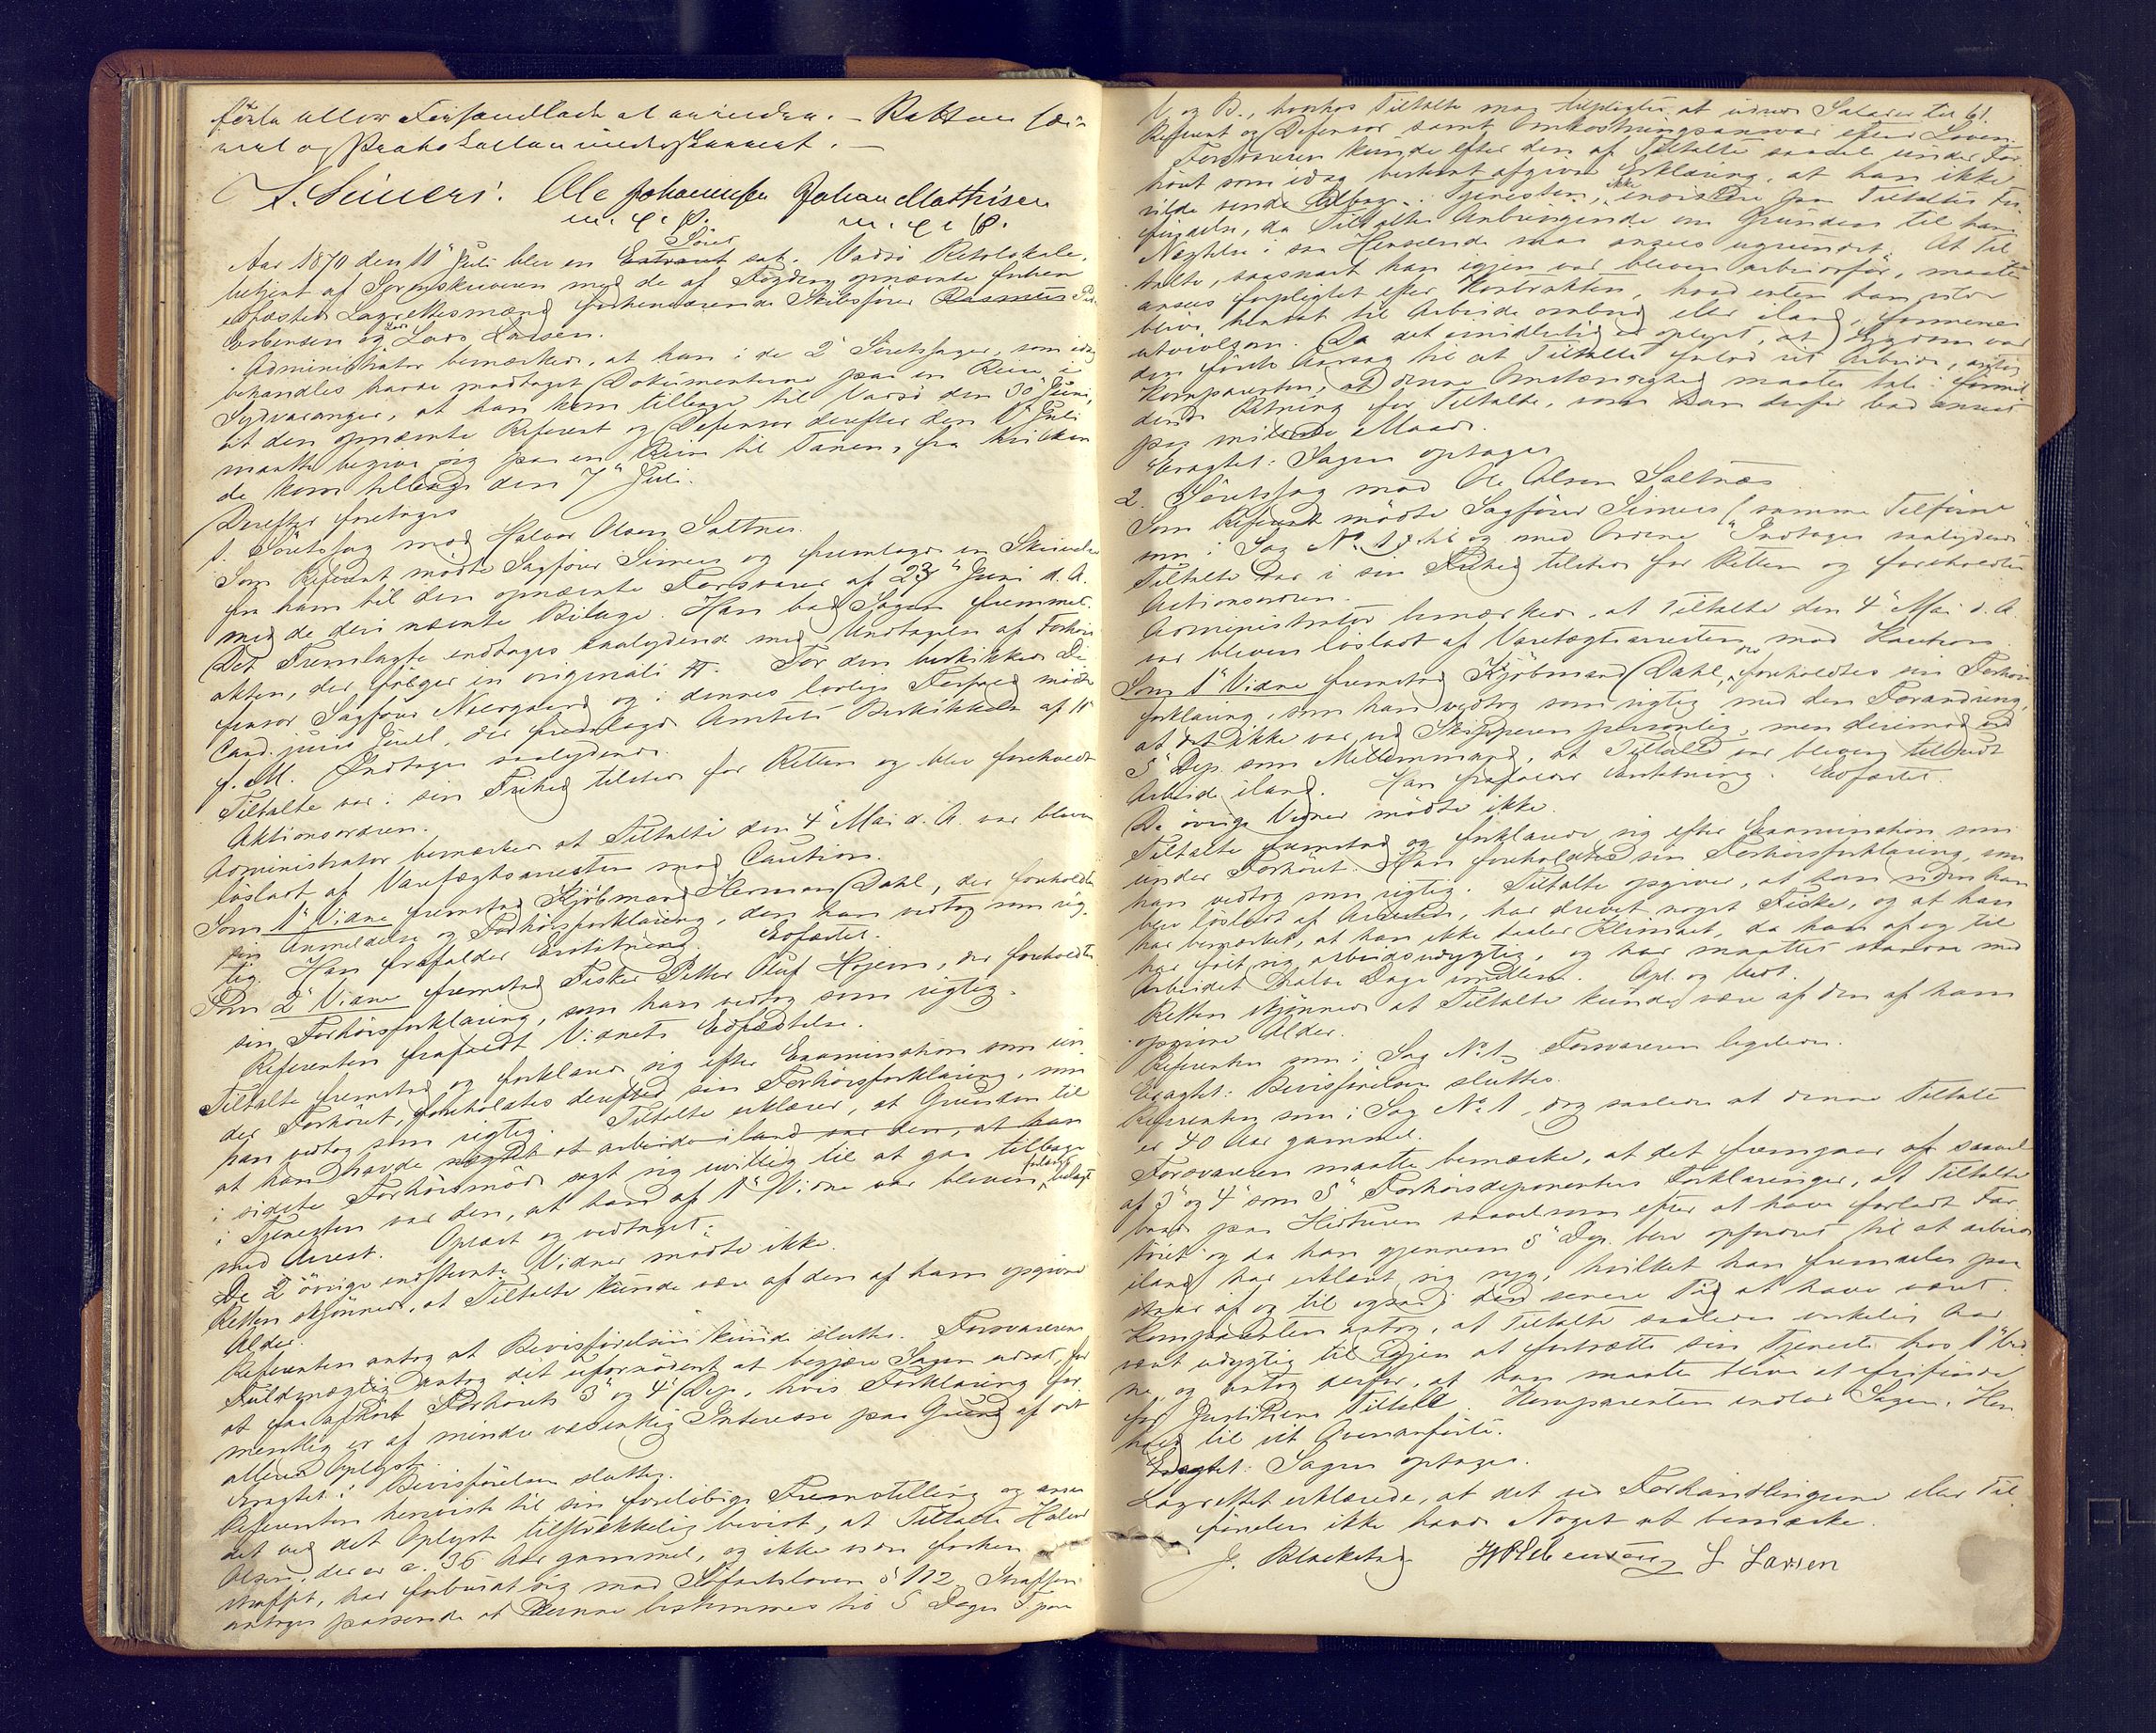 førte eller Forhandlede at erindre. – Retten hæ-
vet og Protokollen underskrevet. –
S. Siwers. Ole Johannesen Johan Mathisen
m. f. P. m. f. P.
Aar 1870 den 11te Juli blev en Extraret Söret sat i Vadsö Retslokale,
betjent af Sorenskriveren med de af Fogden opnævnte forhen
edfæstede Lagrettesmænd forhenværende Skibsfører Rasmus
Esbensen og Lars Larsen.
Administrator bemærkede, at han i de 2de Söretssager, som idag
behandles havde modtaget Dokumenterne paa en Reise i
Sydvaranger, at han kom tilbage til Vadsö den 30te Juni,
at den opnævnte Referent og Defensor derefter den 1te Juli
maatte begive sig paa en Reise til Tanen, fra hvilken
de kom tilbage den 7de Juli.
Derefter foretoges
1. Söretssag mod Halvor Olsen Saltnes.
Som Referent mödte Sagförer Siwers og fremlagde en Skrivelse
fra ham til den opnævnte Forsvarer af 23de Juni d. A.
med de deri nævnte Bilage. Han bad Sagen fremmet.
Det Fremlagte indtages saalydende med Undtagelse af Forhörs
akten, der fölger in originali. For den beskikkede De
fensor Sagförer Neergaard og i dennes lovlige Forfald mödte
Cand. juris Juell, der fremlagde Amtets Beskikkelse af 11te
f. M. Indtages saalydende.
Tiltalte var i sin Frihed tilstede for Retten og blev foreholdt
Aktionsordren.
Administrator bemærkede at Tiltalte den 4de Mai d. A. var bleven
lösladt af Varetægtsarresten mod Caution.
Som 1te Vidne fremstod Kjöbmand Herman Dahl, der foreholdtes
sin Anmeldelse og Forhörsforklaring, den han vedtog som rig-
tig. Han frafalder Erstatning. Edfæstet.
Som 2de Vidne fremstod Fisker Petter Oluf Hojem, der foreholdtes
sin Forhörsforklaring, som han vedtog som rigtig.
Referenten frafaldt Vidnets Edfæstelse.
Tiltalte fremstod og forklarede sig efter Examination som un
der Forhöret, foreholdtes derefter sin Forhörsforklaring, som
han vedtog som rigtig. Tiltalte erklærer, at Grunden til
at han havde nægtet at arbeide iland var den, at han
i sidste Forhörsmöde sagt sig uvillig til at gaa tilbage
i Tjenesten var den, at han af 1te Vidne var bleven belagt
med Arrest. Oplæst og vedtaget.
De 2de övrige indstevnte Vidner mödte ikke.
Retten skjönnede, at Tiltalte kunde være af den af ham opgivne
Alder.
Referenten antog at Bevisförelsen kunde sluttes. Forsvarerens
Fuldmægtig antog det ufornödent at begjære Sagen udsat, for
at faa afhört Forhörets 3de og 4de Dep., hvis Forklaring for
mentlig er af mindre væsentlig Interesse paa Grund af det
allerede Oplyste.
Eragtet: Bevisförelsen sluttes.
Referenten henviste til sin foreløbige Fremstilling og anser
det ved det Oplyste tilstrækkelig bevist, at Tiltalte Halvor
Olsen, der er c. 36 Aar gammel, og ikke vides forhen
straffet, har forbrudt sig mod Söfartsloven § 112. Straffen
antoges passende at kunne bestemmes til 5 Dages F. paa
V. og B., hvorhos Tiltalte maa tilpligtes at udrede Salarier til
Referent og Defensor samt Omkostningsansvar efter Loven.
Forsvareren kunde efter den af Tiltalte saavel under For
höret som idag bestemt afgivne Erklæring, at han ikke
vilde vende tilbage i Tjenesten, ikke insistere paa Tiltaltes Fri
findelse, da Tiltaltes Anbringende om Grunden til hans
Nægtelse i saa Henseende maa ansees ugrundet. At Til
talte, saasnart han igjen var bleven arbeidsför, maatte
ansees forpligtet efter Kontrakten, hvad enten han vilde
blive hentet til Arbeide ombord eller iland, formenes
utvivlsom. Da det imidlertid er oplyst, at Sygdom var
den förste Aarsag til at Tiltalte forlod sit Arbeide, antog
Komparenten, at denne Omstændighed maatte tale i formil
dende Retning for Tiltalte, som han derfor bad anseet
paa mildeste Maade.
Eragtet: Sagen optages.
2. Söretssag mod Ole Olsen Saltnæs.
Som Referent mödte Sagförer Siwers (samme Tilförsel
som i Sag No 1) til og med Ordene "Indtages saalydende".
Tiltalte var i sin Frihed tilstede for Retten og foreholdtes
Aktionsordren.
Administrator bemærkede, at Tiltalte den 4de Mai d. A.
var bleven lösladt af Varetægtsarresten mod Kaution.
Som 1te Vidne fremstod Kjöbmand Dahl, der foreholdtes sin Forhörs
forklaring, som han vedtog som rigtig med den Forandring,
at det ikke var ved Skipperen personlig, men derimod ved
5te Dep. som Mellemmand, at Tiltalte var bleven tilbudt
Arbeide iland. Han frafalder Erstatning. Edfæstet.
De övrige Vidner mödte ikke.
Tiltalte fremstod og forklarede sig efter Examination som
under Forhöret. Han foreholdtes sin Forhörsforklaring, som
han vedtog som rigtig. Tiltalte opgiver, at han siden han
blev lösladt af Arresten, har drevet noget Fiske, og at han
har bemærket, at han ikke taaler Klimaet, da han af og til
har fölt sig arbeidsudygtig, og har maattet standse med
Arbeidet halve Dage imellem. Opl. og vedt.
Retten skjönnede at Tiltalte kunde være af den af ham
opgivne Alder.
Referenten som i Sag No 1. Forsvareren ligeledes.
Eragtet: Bevisförelsen sluttes.
Referenten som i Sag No 1, dog saaledes at denne Tiltalte
er 40 Aar gammel.
Forsvareren maatte bemærke, at det fremgaar af saavel
af 3de og 4de som 5te Forhörsdeponenters Forklaringer, at Tiltalte
baade paa Hidturen saavelsom efter at have forladt Far
töiet og da han gjennem 5te Dep. blev opfordret til at arbeide
iland har erklært sig syg, hvilket han fremdeles paa
staar af og til ogsaa i den senere Tid at have været.
Komparenten antog, at Tiltalte saaledes virkelig har
været udygtig til igjen at fortsætte sin Tjeneste hos 1te Vid
ne, og antog derfor, at han maatte blive at frifinde
for Justitiens Tiltale. Komparenten indlod Sagen i Hen
hold til det Ovenanförte.
Eragtet: Sagen optages.
Lagrettet erklærede, at det ved Forhandlingerne eller Til
förselen ikke havde Noget at bemærke.
J. Blackstad L Larsen